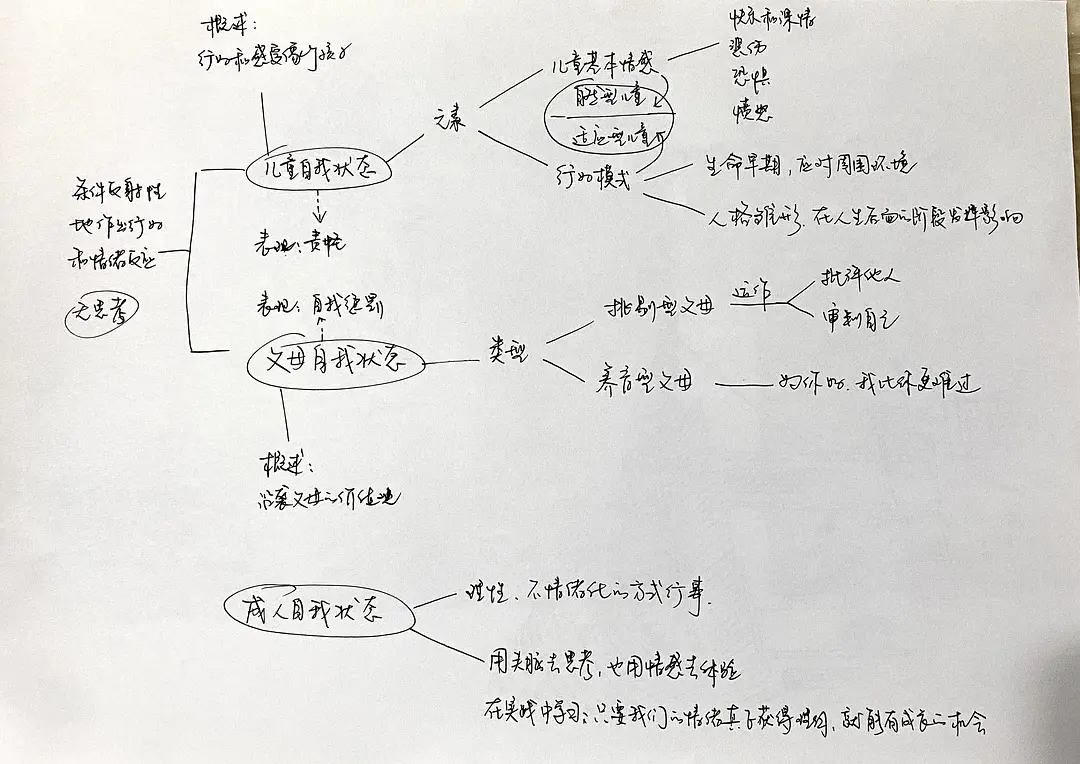 概述：
行为和感受像个孩子
儿童自我状态
表现：责怪
元素
儿童基本情感
快乐和深情
悲伤
恐惧
愤怒
自然型儿童
适应型儿童
行为模式
生命早期，应对周围环境
人格雏形，在人生后面的阶段发挥影响
条件反射性
地作出行为
和情绪反应
无思考
表现：自我惩罚
父母自我状态
概述：
沿袭父母的价值观
类型
挑剔型父母
运作
批评他人
审判自己
养育型父母
为你好，我比你更难过
成人自我状态
理性、不情绪化的方式行事．
用头脑去思考，也用情感去体验
在实践中学习：只要我们的情绪真正获得，就能有成长的机会